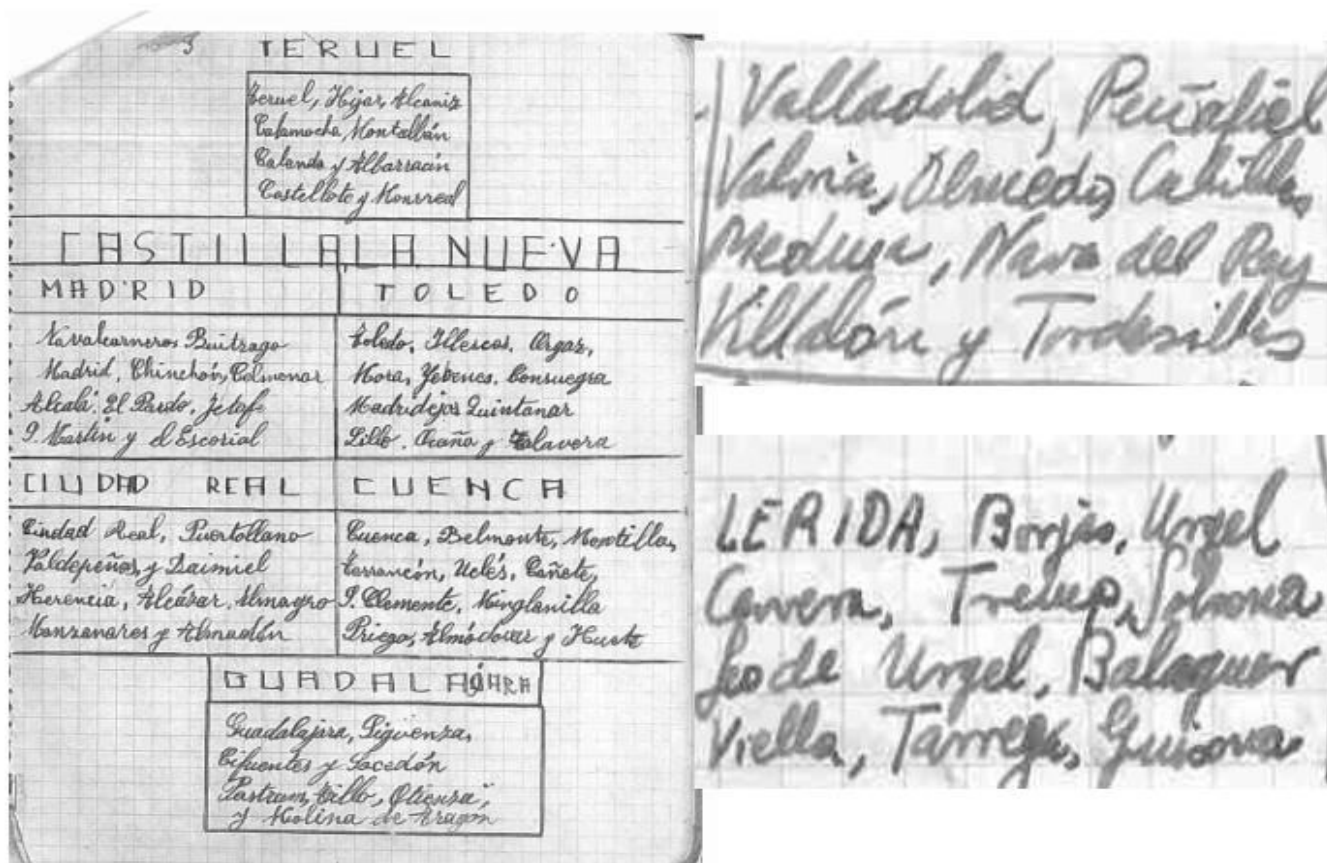 TERUEL
Teruel, Hijar, Alcañiz
Calamocha, Montalbán
Calanda y Albarracín
Castellote y Monrreal
CASTILLA LA NUEVA
MADRID
Navalcarneros Buitrago
Madrid, Chinchón, Colmenar
Alcalá. El Pardo. Jetafe
S. Martín y el Escorial
TOLEDO
Toledo, Illescas. Orgaz,
Mora, Yebenes. Consuegra
Madridejos Quintanar
Lillo. Ocaña y Talavera
CIUDAD REAL
Ciudad Real, Puertollano
Valdepeños, y Daimiel
Herencia, Alcázar. Almagro
Manzanares y Almadén
CUENCA
Cuenca, Belmonte, Montilla,
Tarrancón, Uclés, Cañete,
S. Clemente, Minglanilla
Priego, Almódovar y Huete
GUADALAJARA
Guadalajara, Sigüenza,
Cifuentes y Sacedón
Pastrana, Cillo, Atienza,
y Molina de Aragón
Valladolid, Peñafiel
Valoria, Olmedo,
Medina, Nava del Rey
Villalón y Tordesillas
LERIDA, Borjas, Urgel
Cervera, Tremp, Solsona
Seo de Urgel, Balaguer
Viella, Tarrega, Guisona